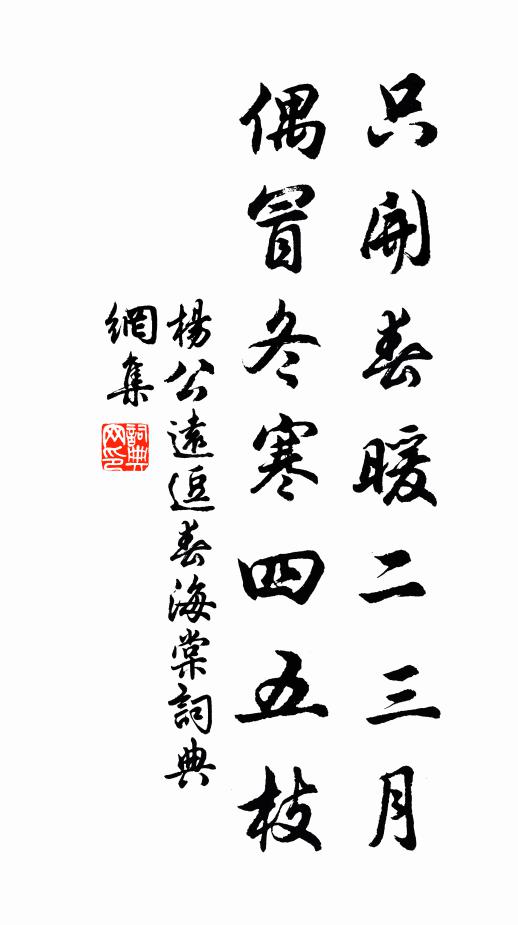 只開春暖二三月
偶冒冬寒四五枝
楊公遠逗春海棠詞典
網集
詞典
网印